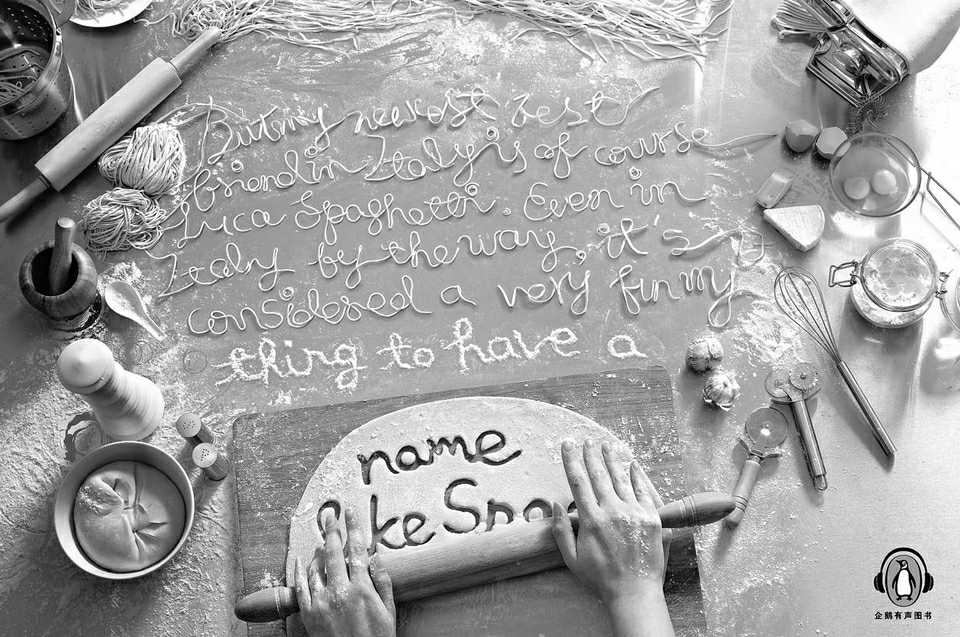 But my newest best
friend in Italy is of course
Luca Spaghetti. Even in
Italy by the way, it's
considered a very funny
thing to have a
name
like Spag
企鹅有声图书